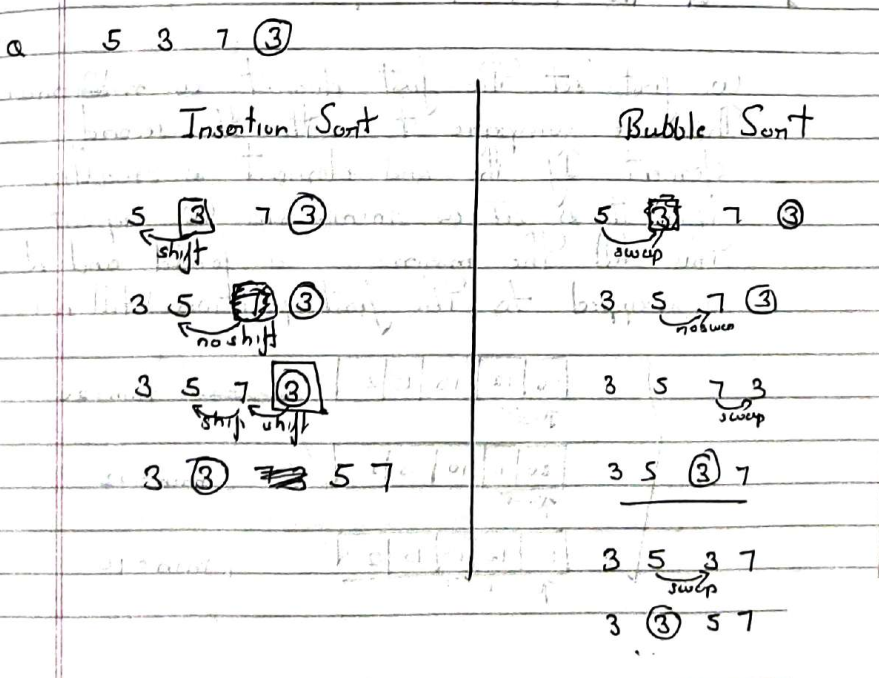 Q 5 3 7 3
Insertion Sort
5 3 7 3
shift
3 5 7 3
no shift
3 5 7 3
shift shift
3 3 5 7
Bubble Sort
5 3 7 3
swap
3 5 7 3
no swap
3 5 7 3
swap
3 5 3 7
3 5 3 7
swap
3 3 5 7